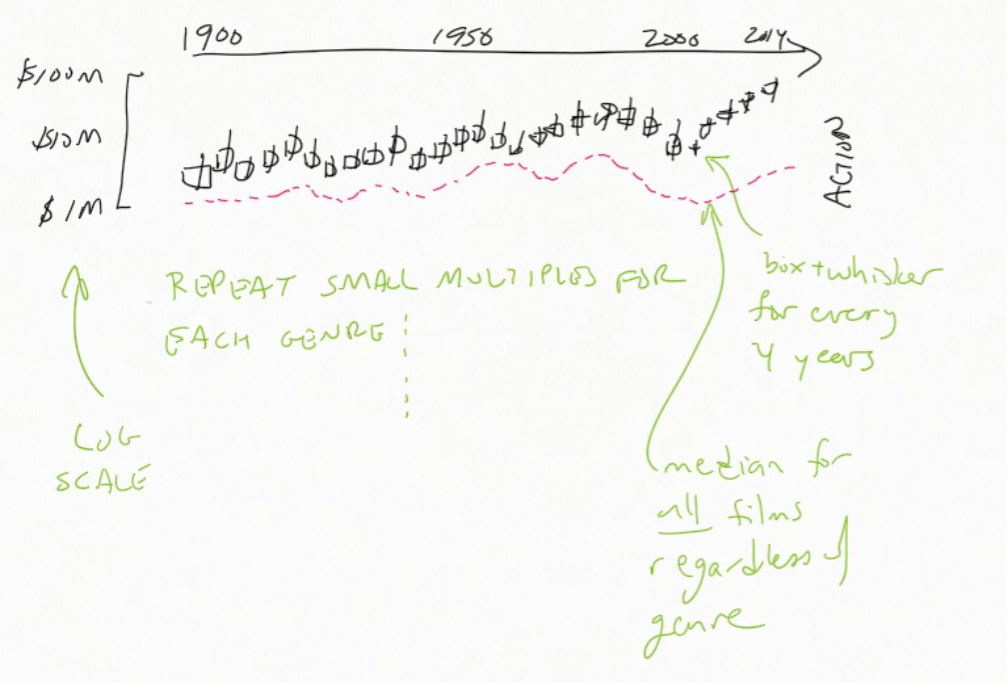 1900 1950 2000 2014
$100M
$10M
$1M
ACTION
REPEAT SMALL MULTIPLES FOR
EACH GENRE
box+whisker
for every
4 years
LOG
SCALE
median for
all films
regardless of
genre